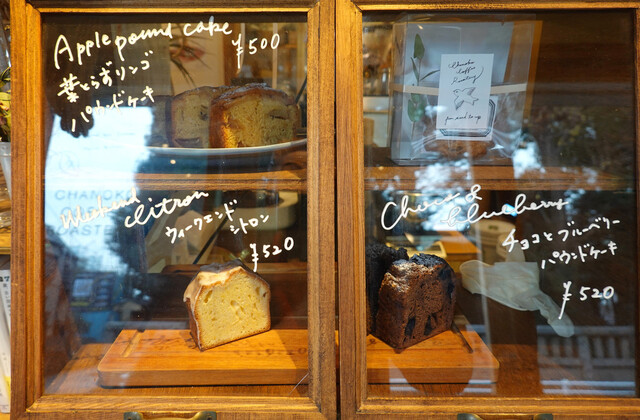 Apple pound cake
¥500
葉とらずリンゴ
パウンドケーキ
CHAMOK
Weekend
citron
ウィークエンド
シトロン
¥520
Choco &
blueberry
チョコとブルーベリー
パウンドケーキ
¥520